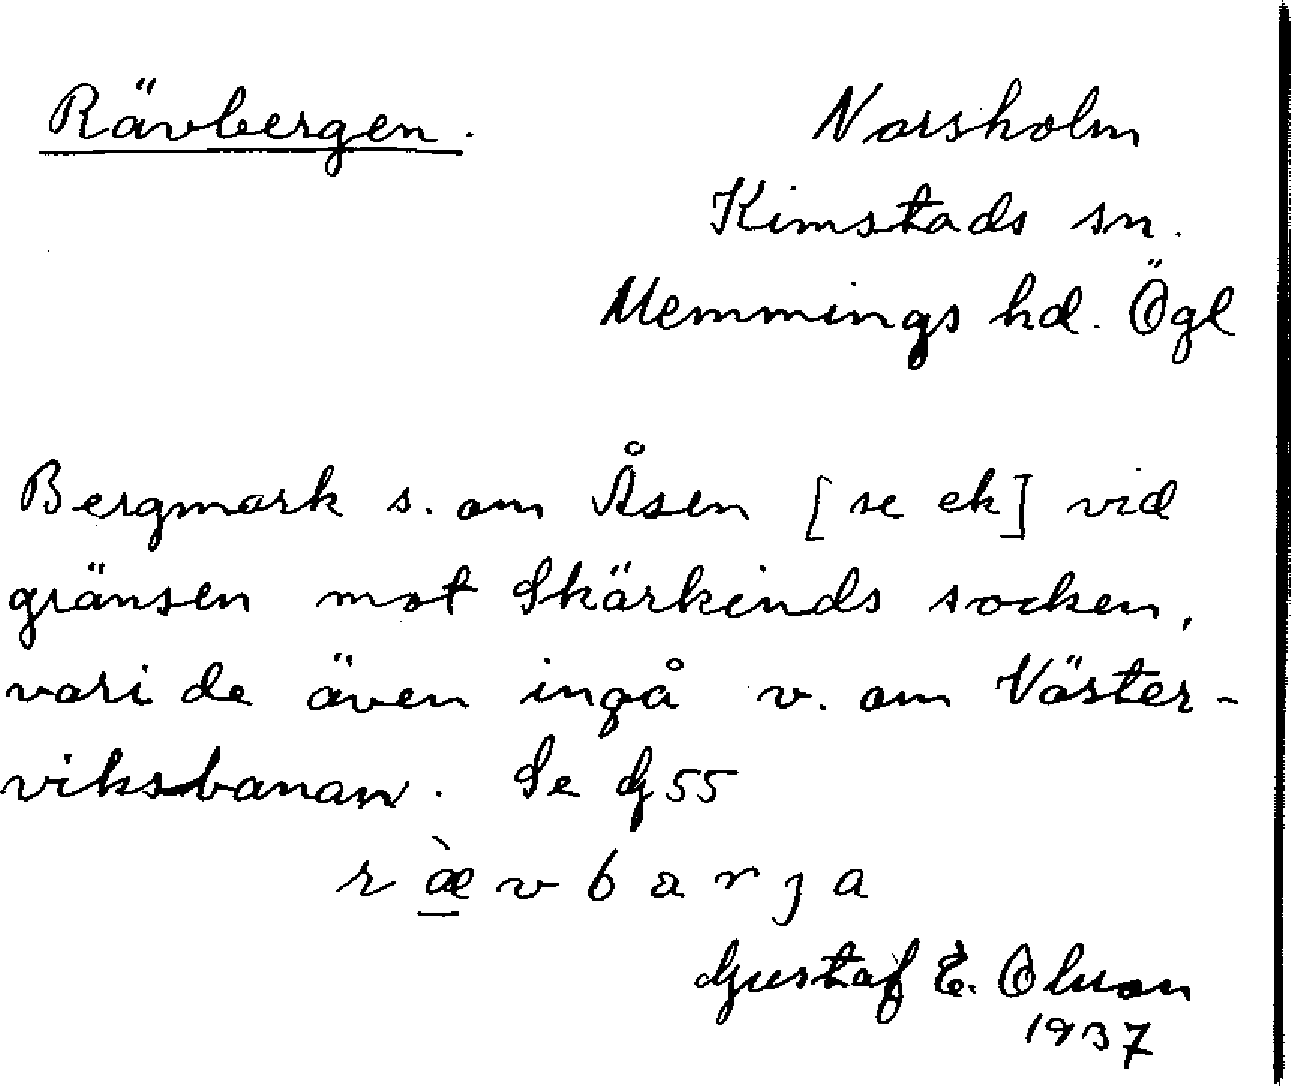 Rävbergen.
Norsholm
Kimstads sn.
Memmings hd. Ögl
Bergmark s. om Åsen [se ek] vid
gränsen mot Skärkinds socken,
vari de även ingå v. om Väster-
viksbanan. Se G 55
r æ̀ v b a r j a
Gustaf E. Olsson
1937